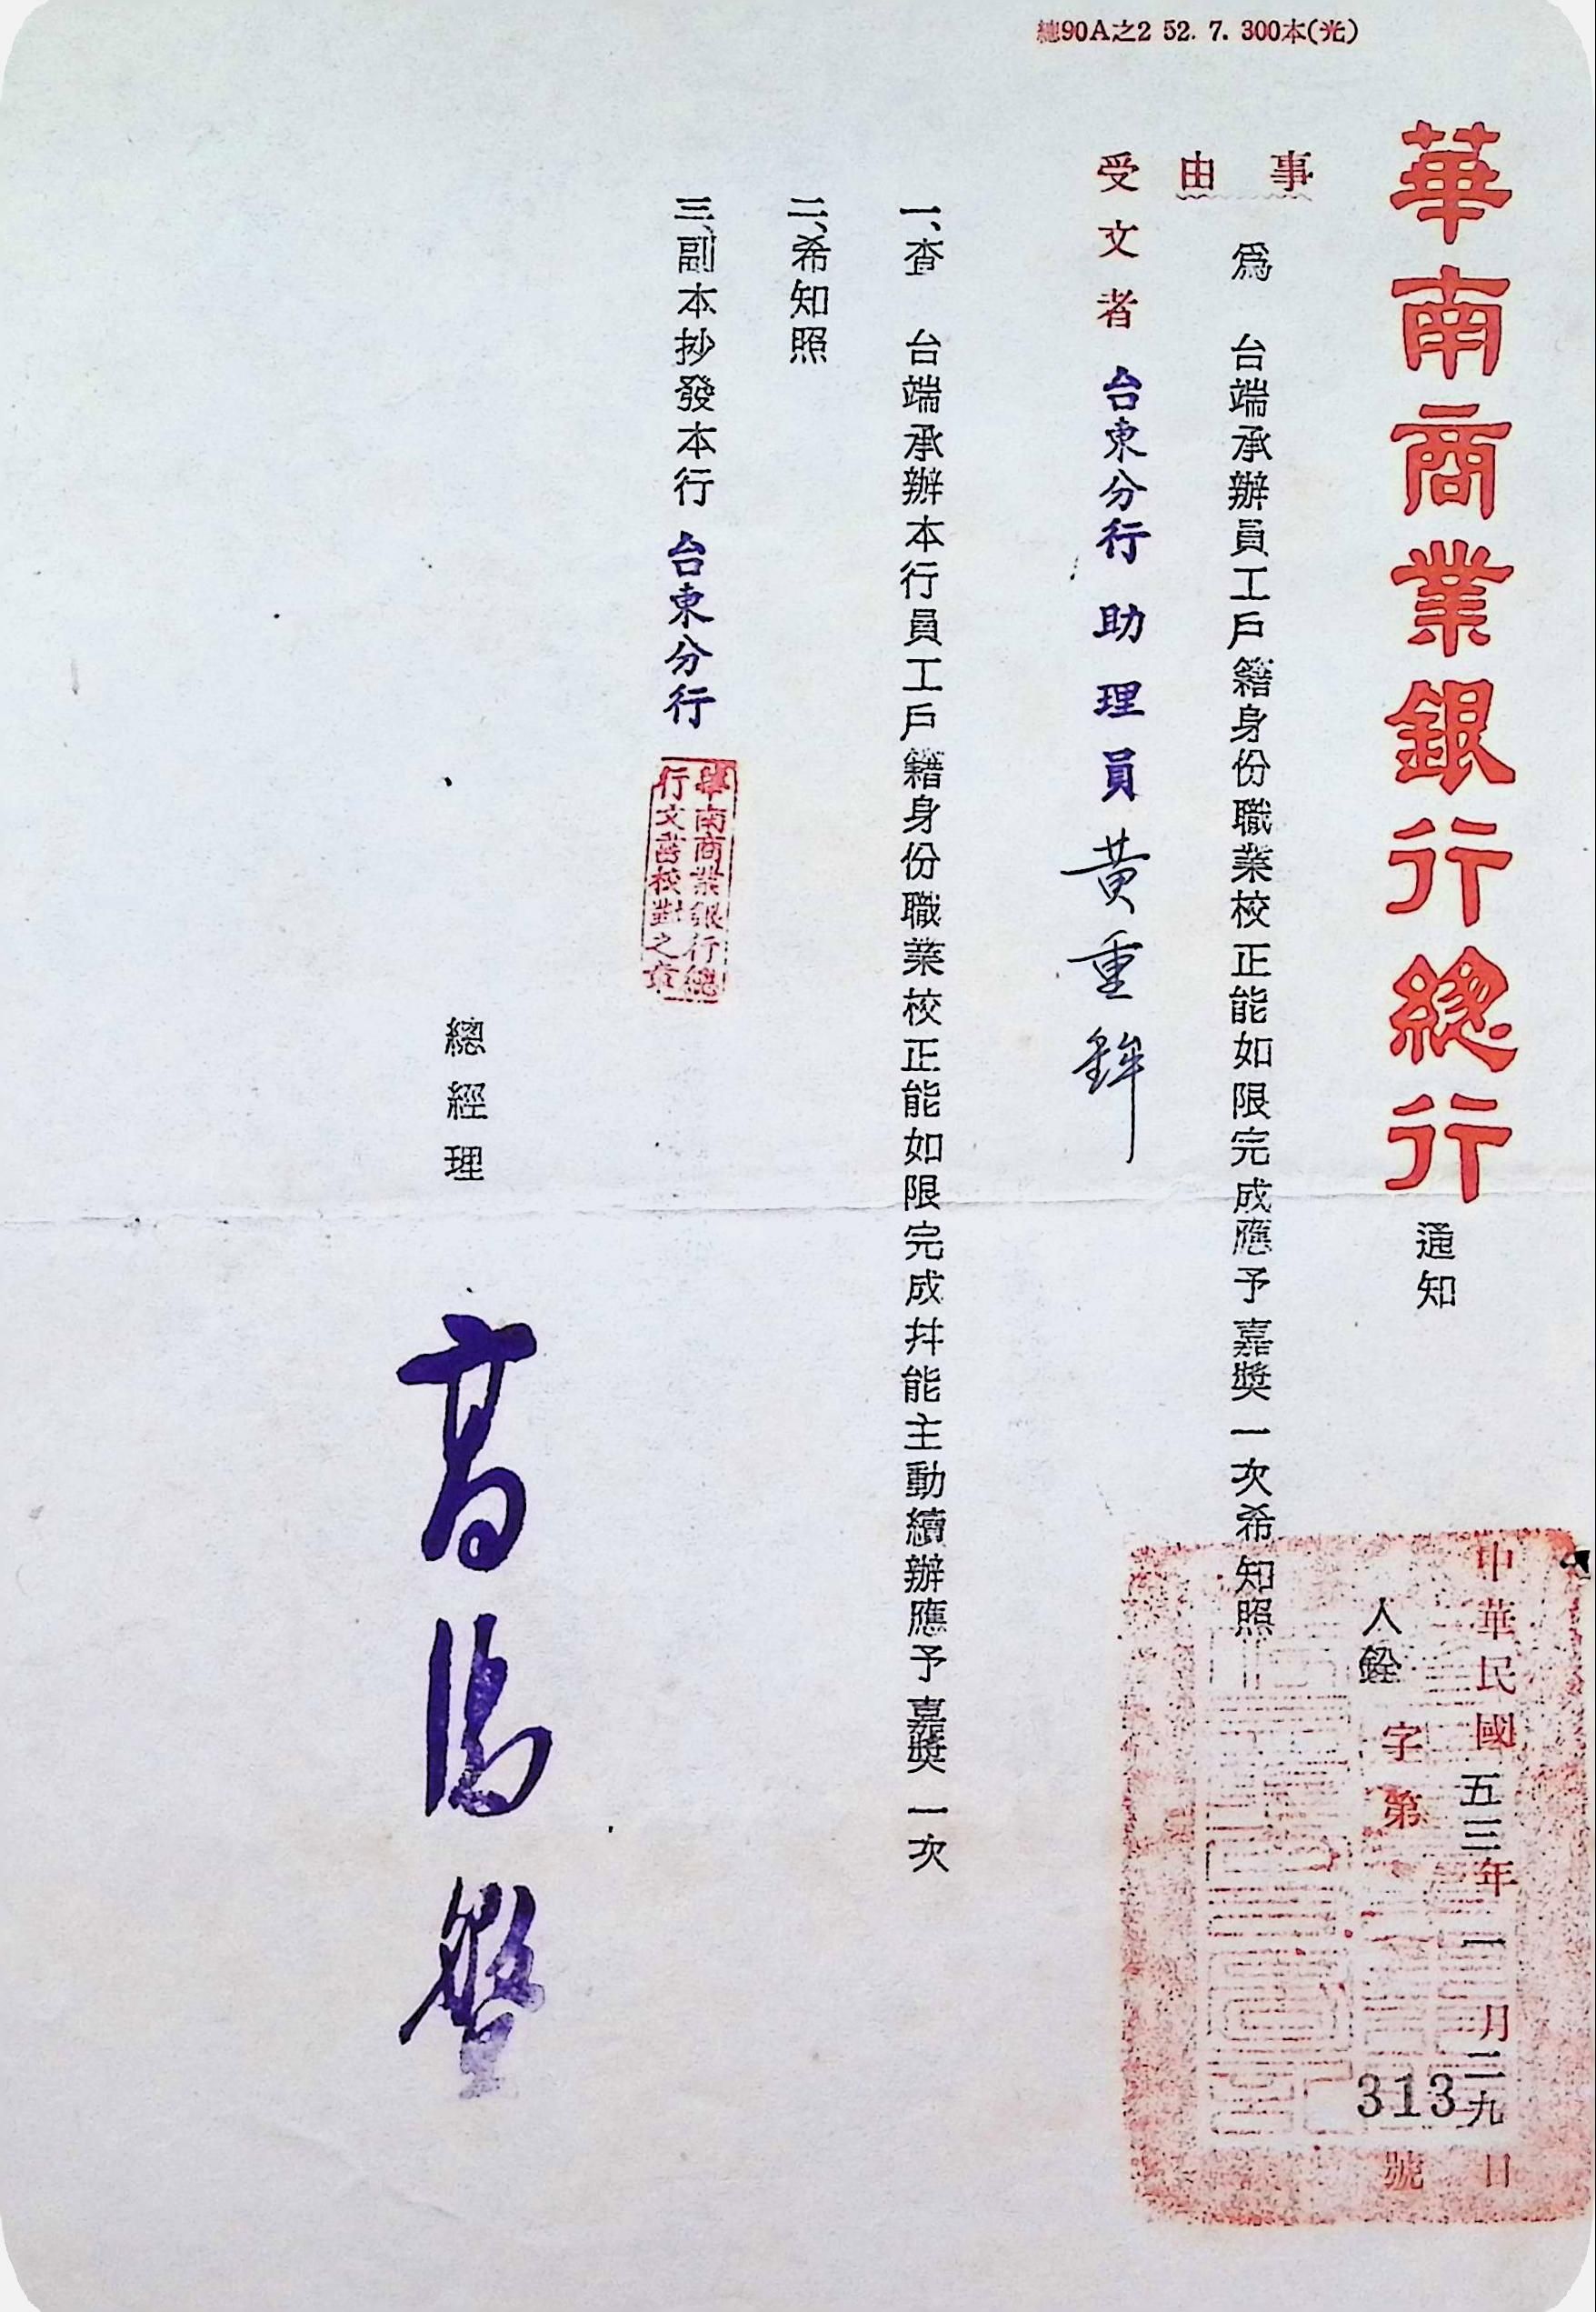 總90A之2 52. 7. 300本(光)
華南商業銀行總行 通知
中華民國五三年一月二九日
人銓字第313號
事由 為 台端承辦員工戶籍身份職業校正能如限完成應予嘉獎一次希知照
受文者 台東分行 助理員 黃重鉾
一、查 台端承辦本行員工戶籍身份職業校正能如限完成幷能主動續辦應予嘉獎一次
二、希知照
三、副本抄發本行 台東分行
華南商業銀行總
行文書校對之章
總經理 高湯盤